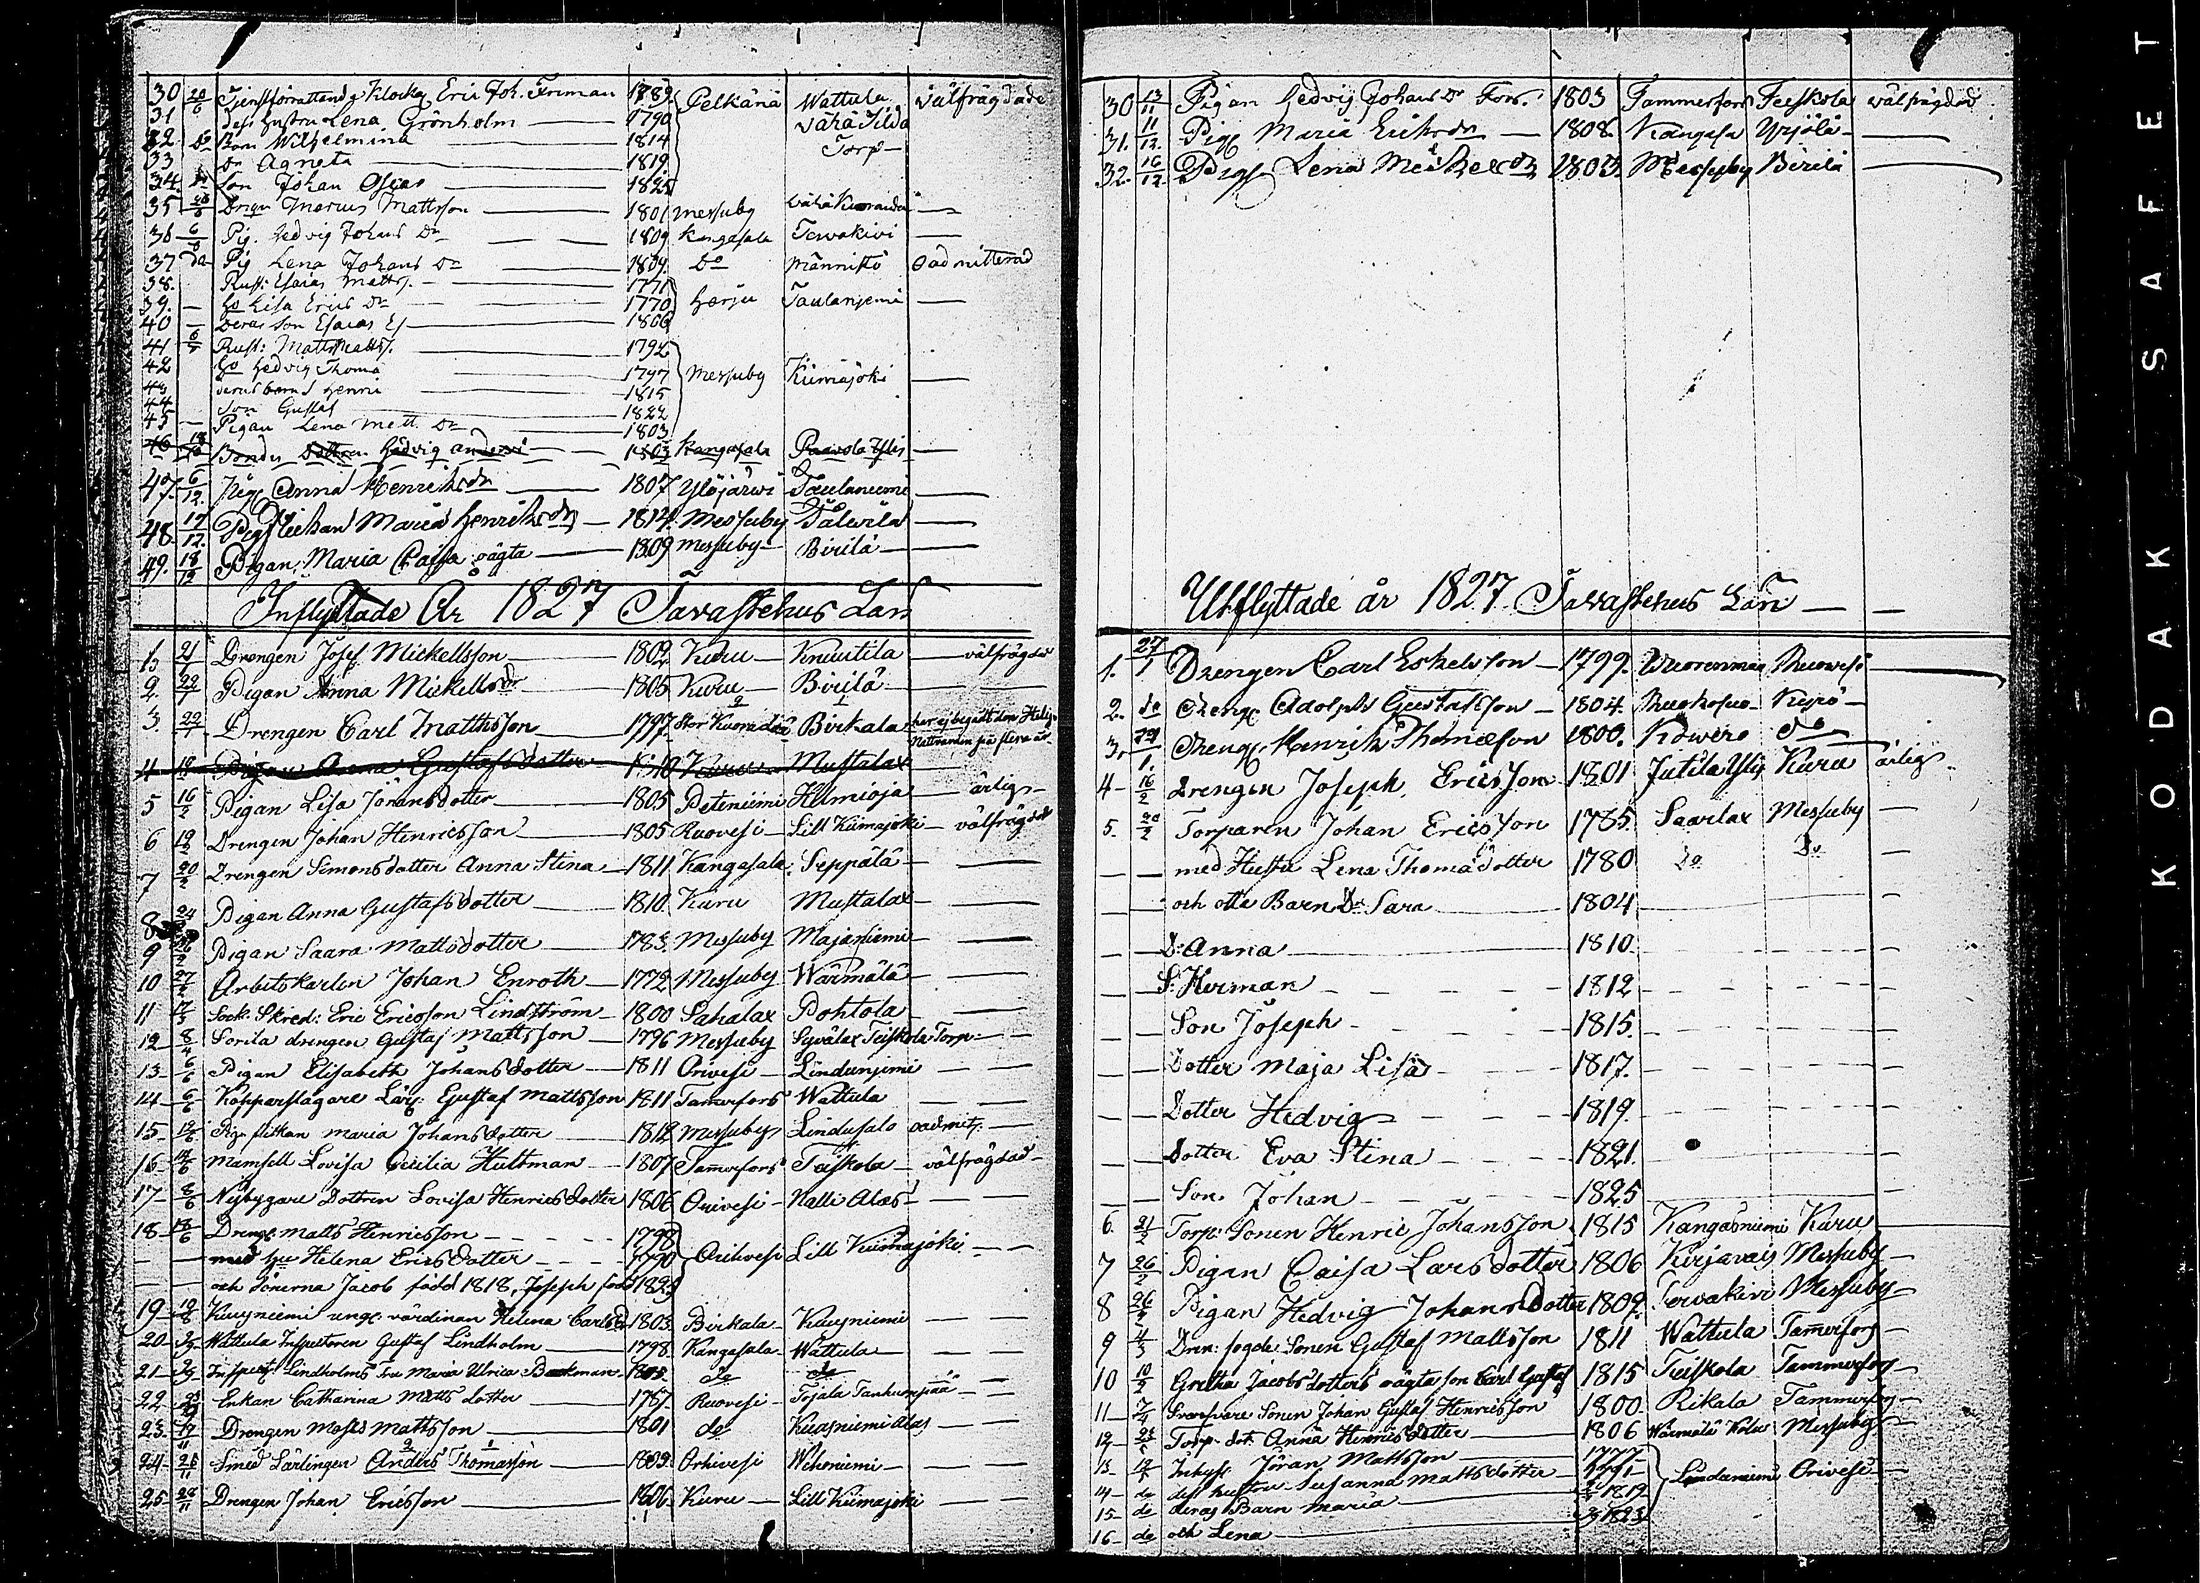 30 20/6 Tjenstförrattand. Klocka. Eric Joh. Friman 1789 Pelkänä Wattula välfrägdade
31 Dess hustru Lena Grönholm 1790 Vähä Tilda
32 do Barn Wilhelmina 1814 Torp
33 Dr Agneta 1819
34 do Son Johan 1825
35 Dreng Marcus Mattsson 1801 Messuby
36 6/8 Pig. Hedvig Johans Dr 1809 Kangasala Tervakivi
37 do Pig Lena Johans Dr 1804 Do Männistö oadmitterad
38. Rust: Esaias Matts. 1771
39. Ho Lisa Erics Dr 1770 Harju Taulaniemi
40 Deras Son Esaias Es 1806
41 Rust: Matts Matts. 1792
42 Ho Hedvig Thoma 1797 Messuby Kiimajoki
43 deras barn Henric 1815
44 Son Gustaf 1822
45 Pigan Lena Matt. Dr 1803
46 Bonde Dottren Hedvig Anders 1803 Kangasala Paavola
47. 6/12. Pig. Anna Henriksdr 1807 Ylöjärwi Taulaniemi
48. 17/12. Pigflickan Maria Henriksdr 1814. Messuby Pälwilä
49. 18/12 Pigan, Maria Caisa oägta 1809 Messuby Birilä
Inflyttade År 1827 Tavastehus Län
1. 21/1 Drengen Josef Mickellsson 1802 Kuru Knuutila välfrägdad
2. 22/1 Pigan Anna Mickellsdr 1805 Kuru Birilä
3. 22/1 Drengen Carl Matthsson 1797 Stor Kuoranda Birkala har ej begådt den Helige Nattvarden på flera år
4 Pigan Anna Gustafsdotter 1810 Kuru Mustalax
5 16/2 Pigan Lisa Jöransdotter 1805 Peteniemi Hilmioja ärlig
6 19/2 Drengen Johan Henricsson 1805 Ruovesi Lill Kiimajoki välfrägdad
7 20/2 Drengen Simonsdotter Anna Stina 1811 Kangasala Seppälä
8 24/2 Pigan Anna Gustafsdotter 1810 Kuru Mustalax
9 26/2 Pigan Saara Mattsdotter 1783 Messuby Majaniemi
10 27/2 Arbetskarlen Johan Enroth 1772 Messuby Wärmälä
11 17/3 Sock: Skred: Eric Ericsson Lindström 1800 Sahalax Pohtola
12 8/4 Sorila drengen Gustaf Mattsson 1796 Messuby Syvälax Teiskola Torp
13 6/6 Pigan Elisabeth Johansdotter 1811 Orivesi Lindunjemi
14 6/6 Kopparslagare Lär. Gustaf Mattsson 1811 Tamerfors Wattula
15 12/6 Pig flickan Maria Johansdotter 1812 Messuby Lindusalo oadmit.
16 14/6 Mamsell Lovisa Cecilia Hultman 1807 Tamerfors Teiskola välfrägdad
17 8/6 Nybygare Dottren Lovisa Henricsdotter 1806 Orivesi Kalli Alas
18 18/6 Drengen Matts Henricsson 1798
med hu Helena Ericsdotter 1790 Orihvesi Lill Kiimajoki
och Sönerna Jacob född 1818, Joseph född 1823
19 12/8 Kuusniemi unge värdinan Helena Carlsdr 1803 Birkala Kuusniemi
20 Wattula Inspectoren Gustaf Lindholm 1798 Kangasala Wattula
21 Inspect. Lindholms Fru Maria Ulrica Backman do do
22 Enkan Catharina Mattsdotter 1767 Ruovesi Tojala Tanhunpää
23 Drengen Moses Mattsson 1801 do Kuusniemi Alas
24 25/11 Smed Lärlingen Anders Thomasson Orhivesi Wihoniemi
25 28/11 Drengen Johan Ericsson 1806 Kuru Lill Kiimajoki
30 13/11 Pigan Hedvig Johans Dr Fors. 1803 Tammerfors Teiskola välfrägdad
31. 11/12. Pig. Maria Eriksdr 1808 Kangasa Yrjölä
32. 16/12. Pig. Lena Meikelsdr 1803 Messuby Birilä
Utflyttade år 1827 Tavastehus Län
1. 27/1 Drengen Carl Eskelsson 1799. Wuorenmaa Ruowesi
2. do Dreng. Adolph Gustafsson 1804 Keyrö
3. Dreng. Henrik Thomasson 1800. do
4 16/2 Drengen Joseph Ericsson 1801 Jutila Yli Kuru ärlig
5. 20/2 Torparen Johan Ericsson 1785 Saarlax Messuby
med Hustru Lena Thomadotter 1780 Do Do
och otta Barn Dr Sara 1804
D: Anna 1810
S: Herman 1812
Son Joseph 1815
Dotter Maja Lisa 1817
Dotter Hedvig 1819
Dotter Eva Stina 1821
Son Johan 1825
6. 21/2 Torp: Sonen Henric Johansson 1815 Kangasniemi Kuru
7 26/2 Pigan Caisa Larsdotter 1806 Kirjavais Messuby
8 26/2 Pigan Hedvig Johansdotter 1809. Tervakivi Messuby
9 4/3 Drn: fogde Sonen Gustaf Mattsson 1811 Wattula Tamerfors
10 10/2 Gretha Jacobsdotters oägta son Carl Gustaf 1815 Teiskola Tammerfors
11 7/4 Svarfvare Sonen Johan Gustaf Henricsson 1800 Rikala Tammerfors
12 Torp. dot. Anna Henricsdotter 1806 Wärmälä Messuby
13 Inhys. Jöran Mattsson 1777
14 do des hustru Susanna Mattsdotter 1791 Lindunjemi Orivesi
15 do deras Barn Maria 1819
16 do och Lena 1823
KODAK SAFET